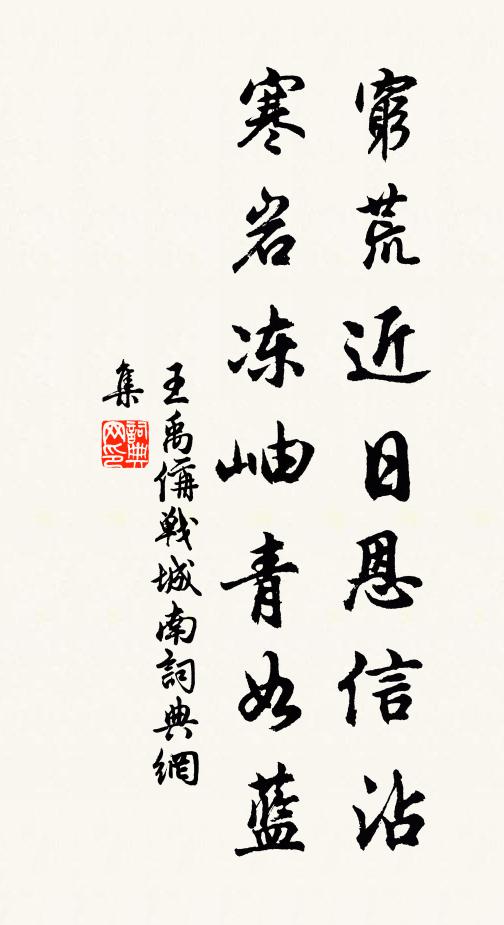 窮荒近日恩信沾
寒岩冻岫青如藍
王禹偁戰城南詞典網
集
詞典网印